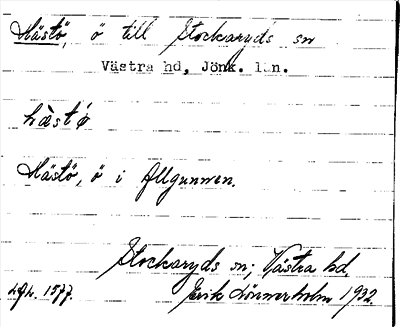 Hästö, ö till Stockaryds sn
Västra hd, Jönk. län.
hàstó
Hästö, ö i Allgunnen.
Stockaryds sn; Västra hd
1577. Erik Lönnerholm 1932